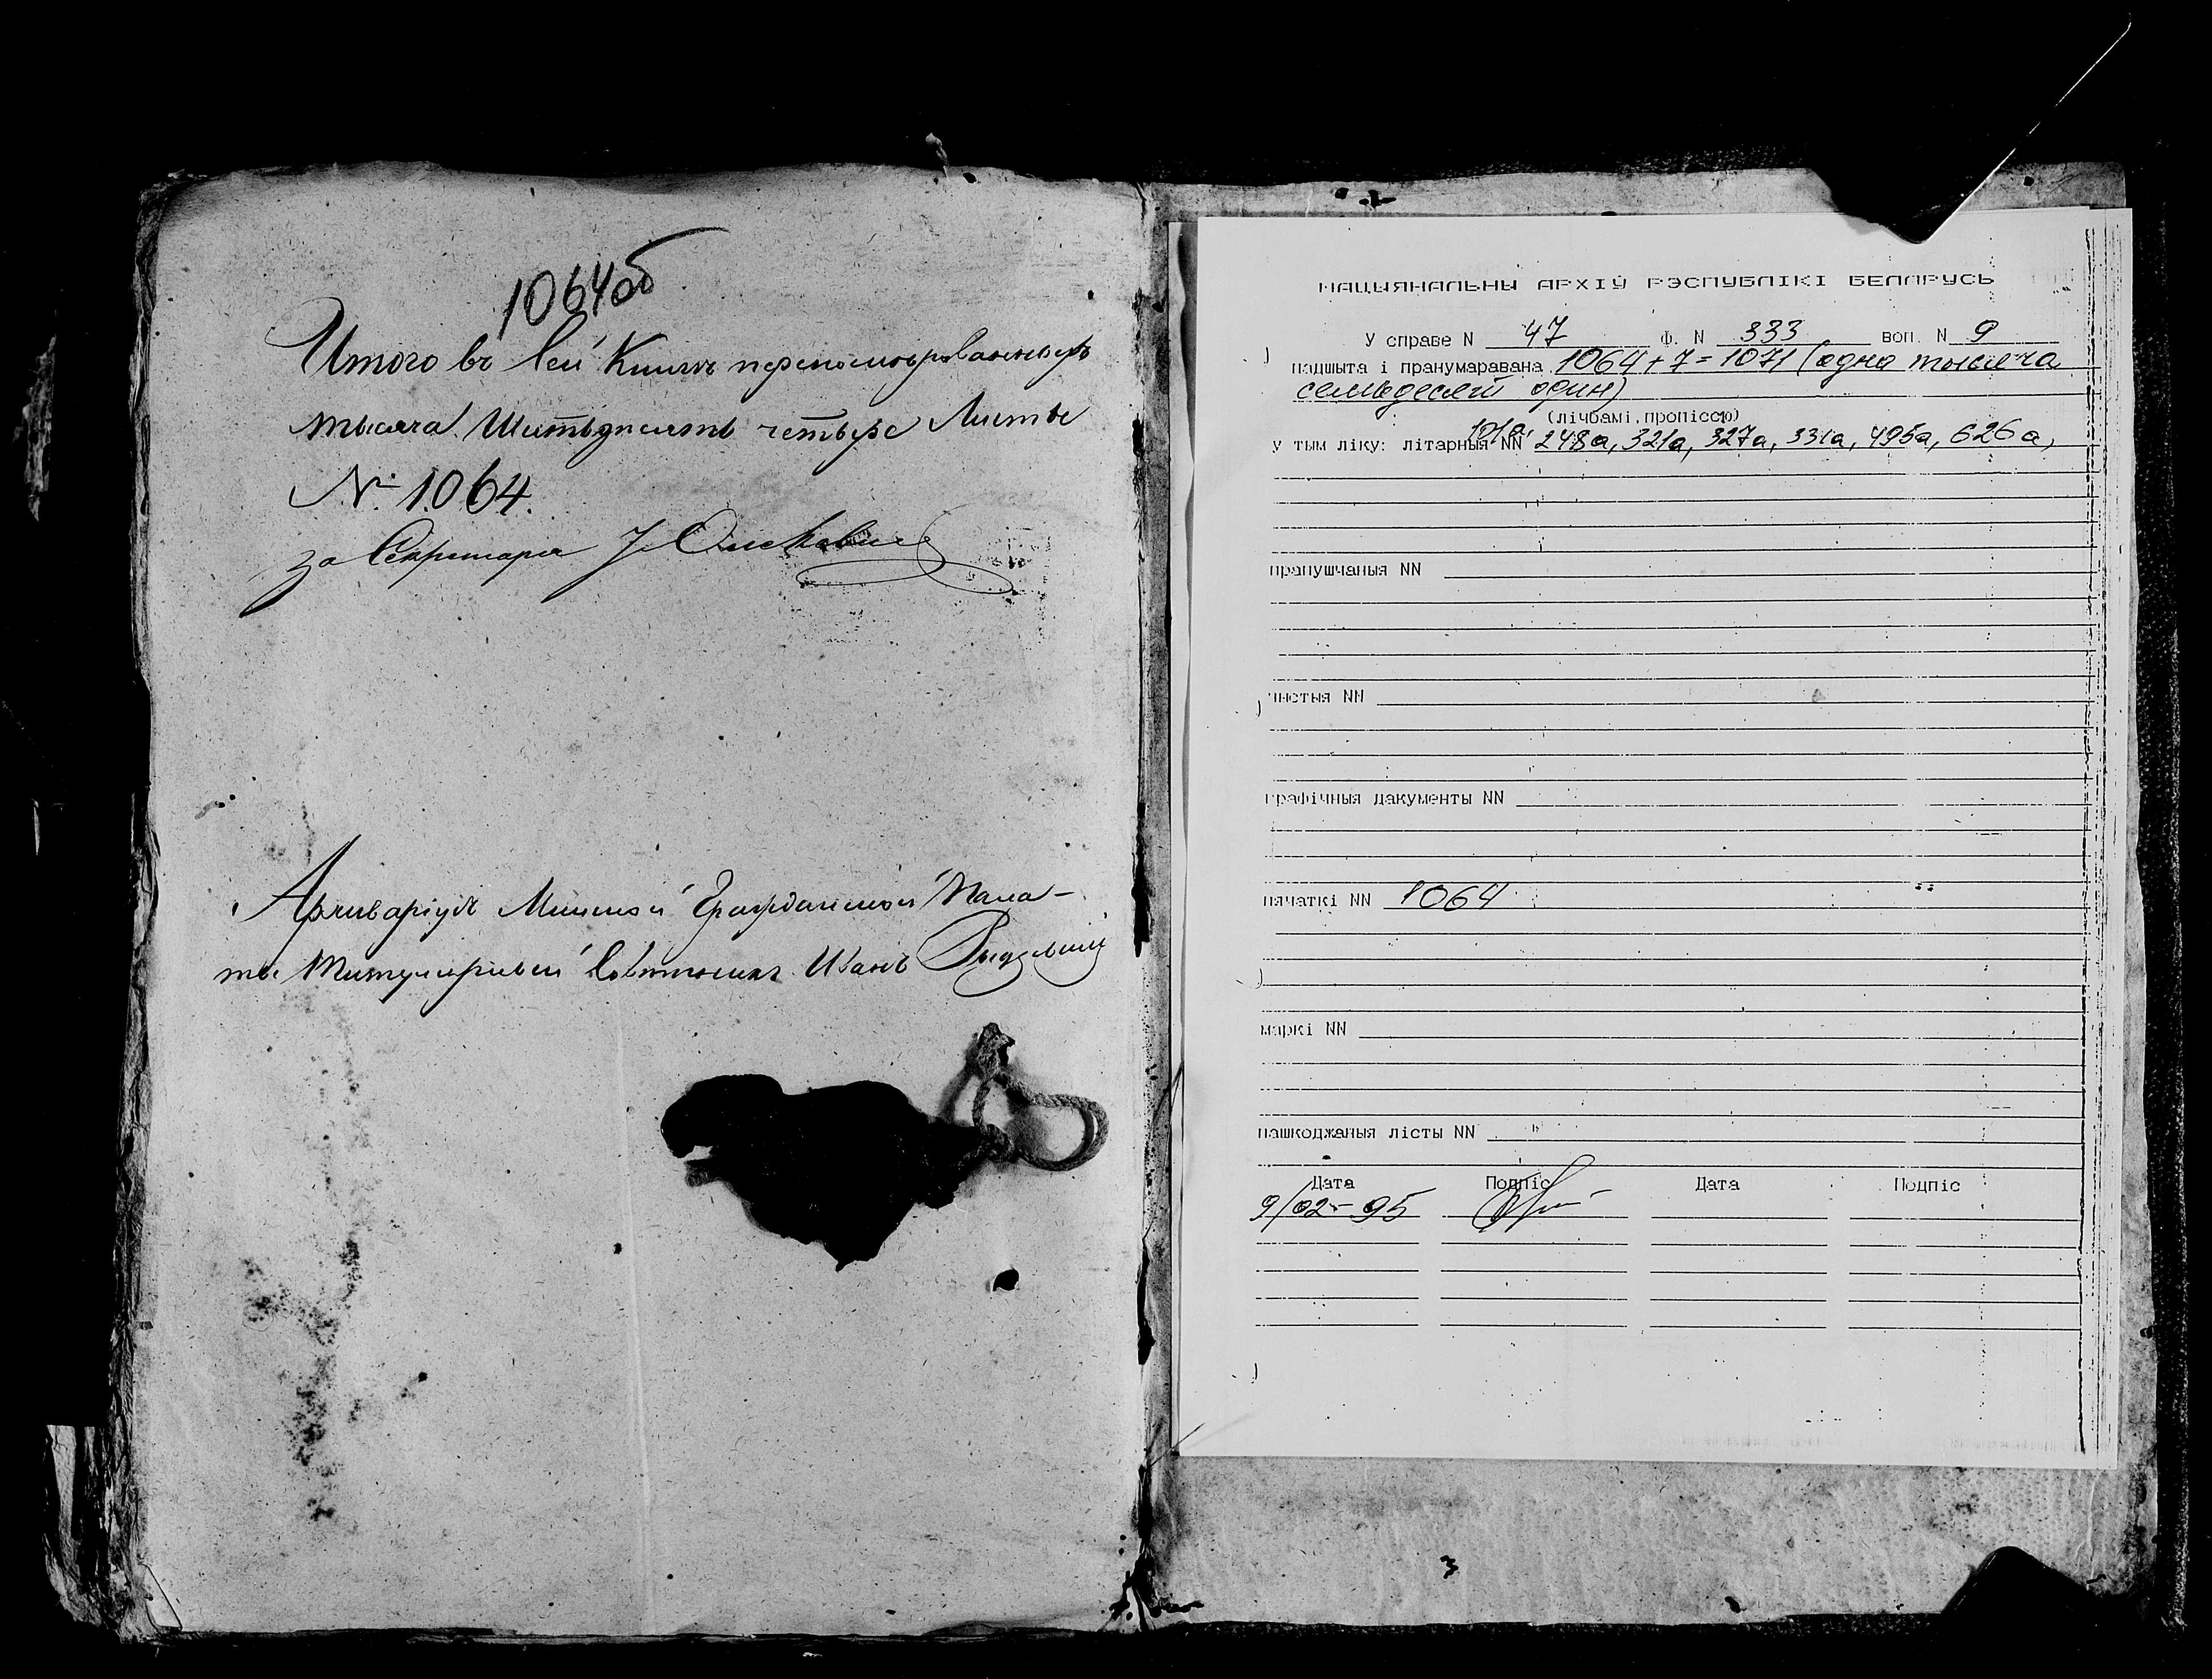 1064об
Итого въ сей Книгѣ перенумерованныхъ
тысяча Шестьдесятъ четыре Листы
№ 1064.
за Секретаря
Архиваріусъ Минской Гражданской Пала-
ты Титулярный Совѣтникъ Иванъ
НАЦЫЯНАЛЬНЫ АРХІЎ РЭСПУБЛІКІ БЕЛАРУСЬ
У справе N 47 Ф. N 333 воп. N 9
падшыта і пранумаравана 1064+7=1071 (одна тысяча
семьдесят один)
(лічбамі, пропіссю)
101а,
у тым ліку: літарныя NN 248а, 321а, 327а, 331а, 495а, 626а,
прапушчаныя NN
чыстыя NN
графічныя дакументы NN
пячаткі NN 1064
маркі NN
пашкоджаныя лісты NN
Дата Подпіс Дата Подпіс
9/02-95